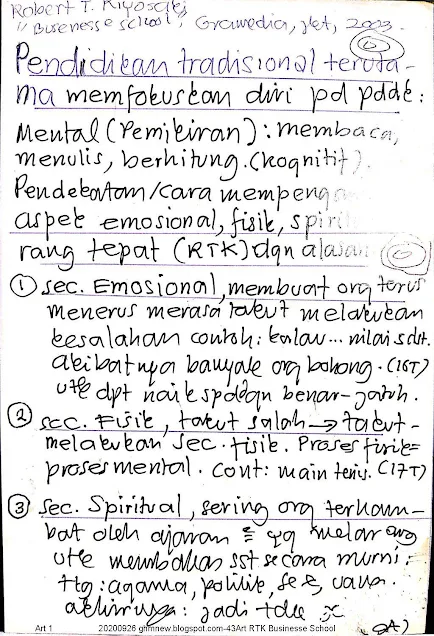 Robert T. Kiyosaki
"Businesse school", Gramedia, jkt, 2003.
Pendidikan tradisional teruta-
ma memfokuskan diri pd pddk:
Mental (Pemikiran): membaca,
menulis, berhitung. (kognitif).
Pendekatan/cara mempenga
aspek emosional, fisik, spirit
rang tepat (RTK) dgn alasan
① sec. Emosional, membuat org terus
menerus merasa takut melakukan
kesalahan contoh: kalau... nilai sdt.
akibatnya banyak org bohong. (16T)
utk dpt naik spd dgn benar-jatuh.
② sec. Fisik, takut salah → takut-
melakukan sec. fisik. Proses fisik=
proses mental. cont: main tenis. (17T)
③ sec. Spiritual, sering org terham-
bat oleh ajaran ² yg melarang
utk membahas sst secara murni:
ttg: agama, politik, sex, uang.
akhirnya: jadi tdk
Art 1 20200926 ghmnew.blogspot.com-43Art RTK Businesse School